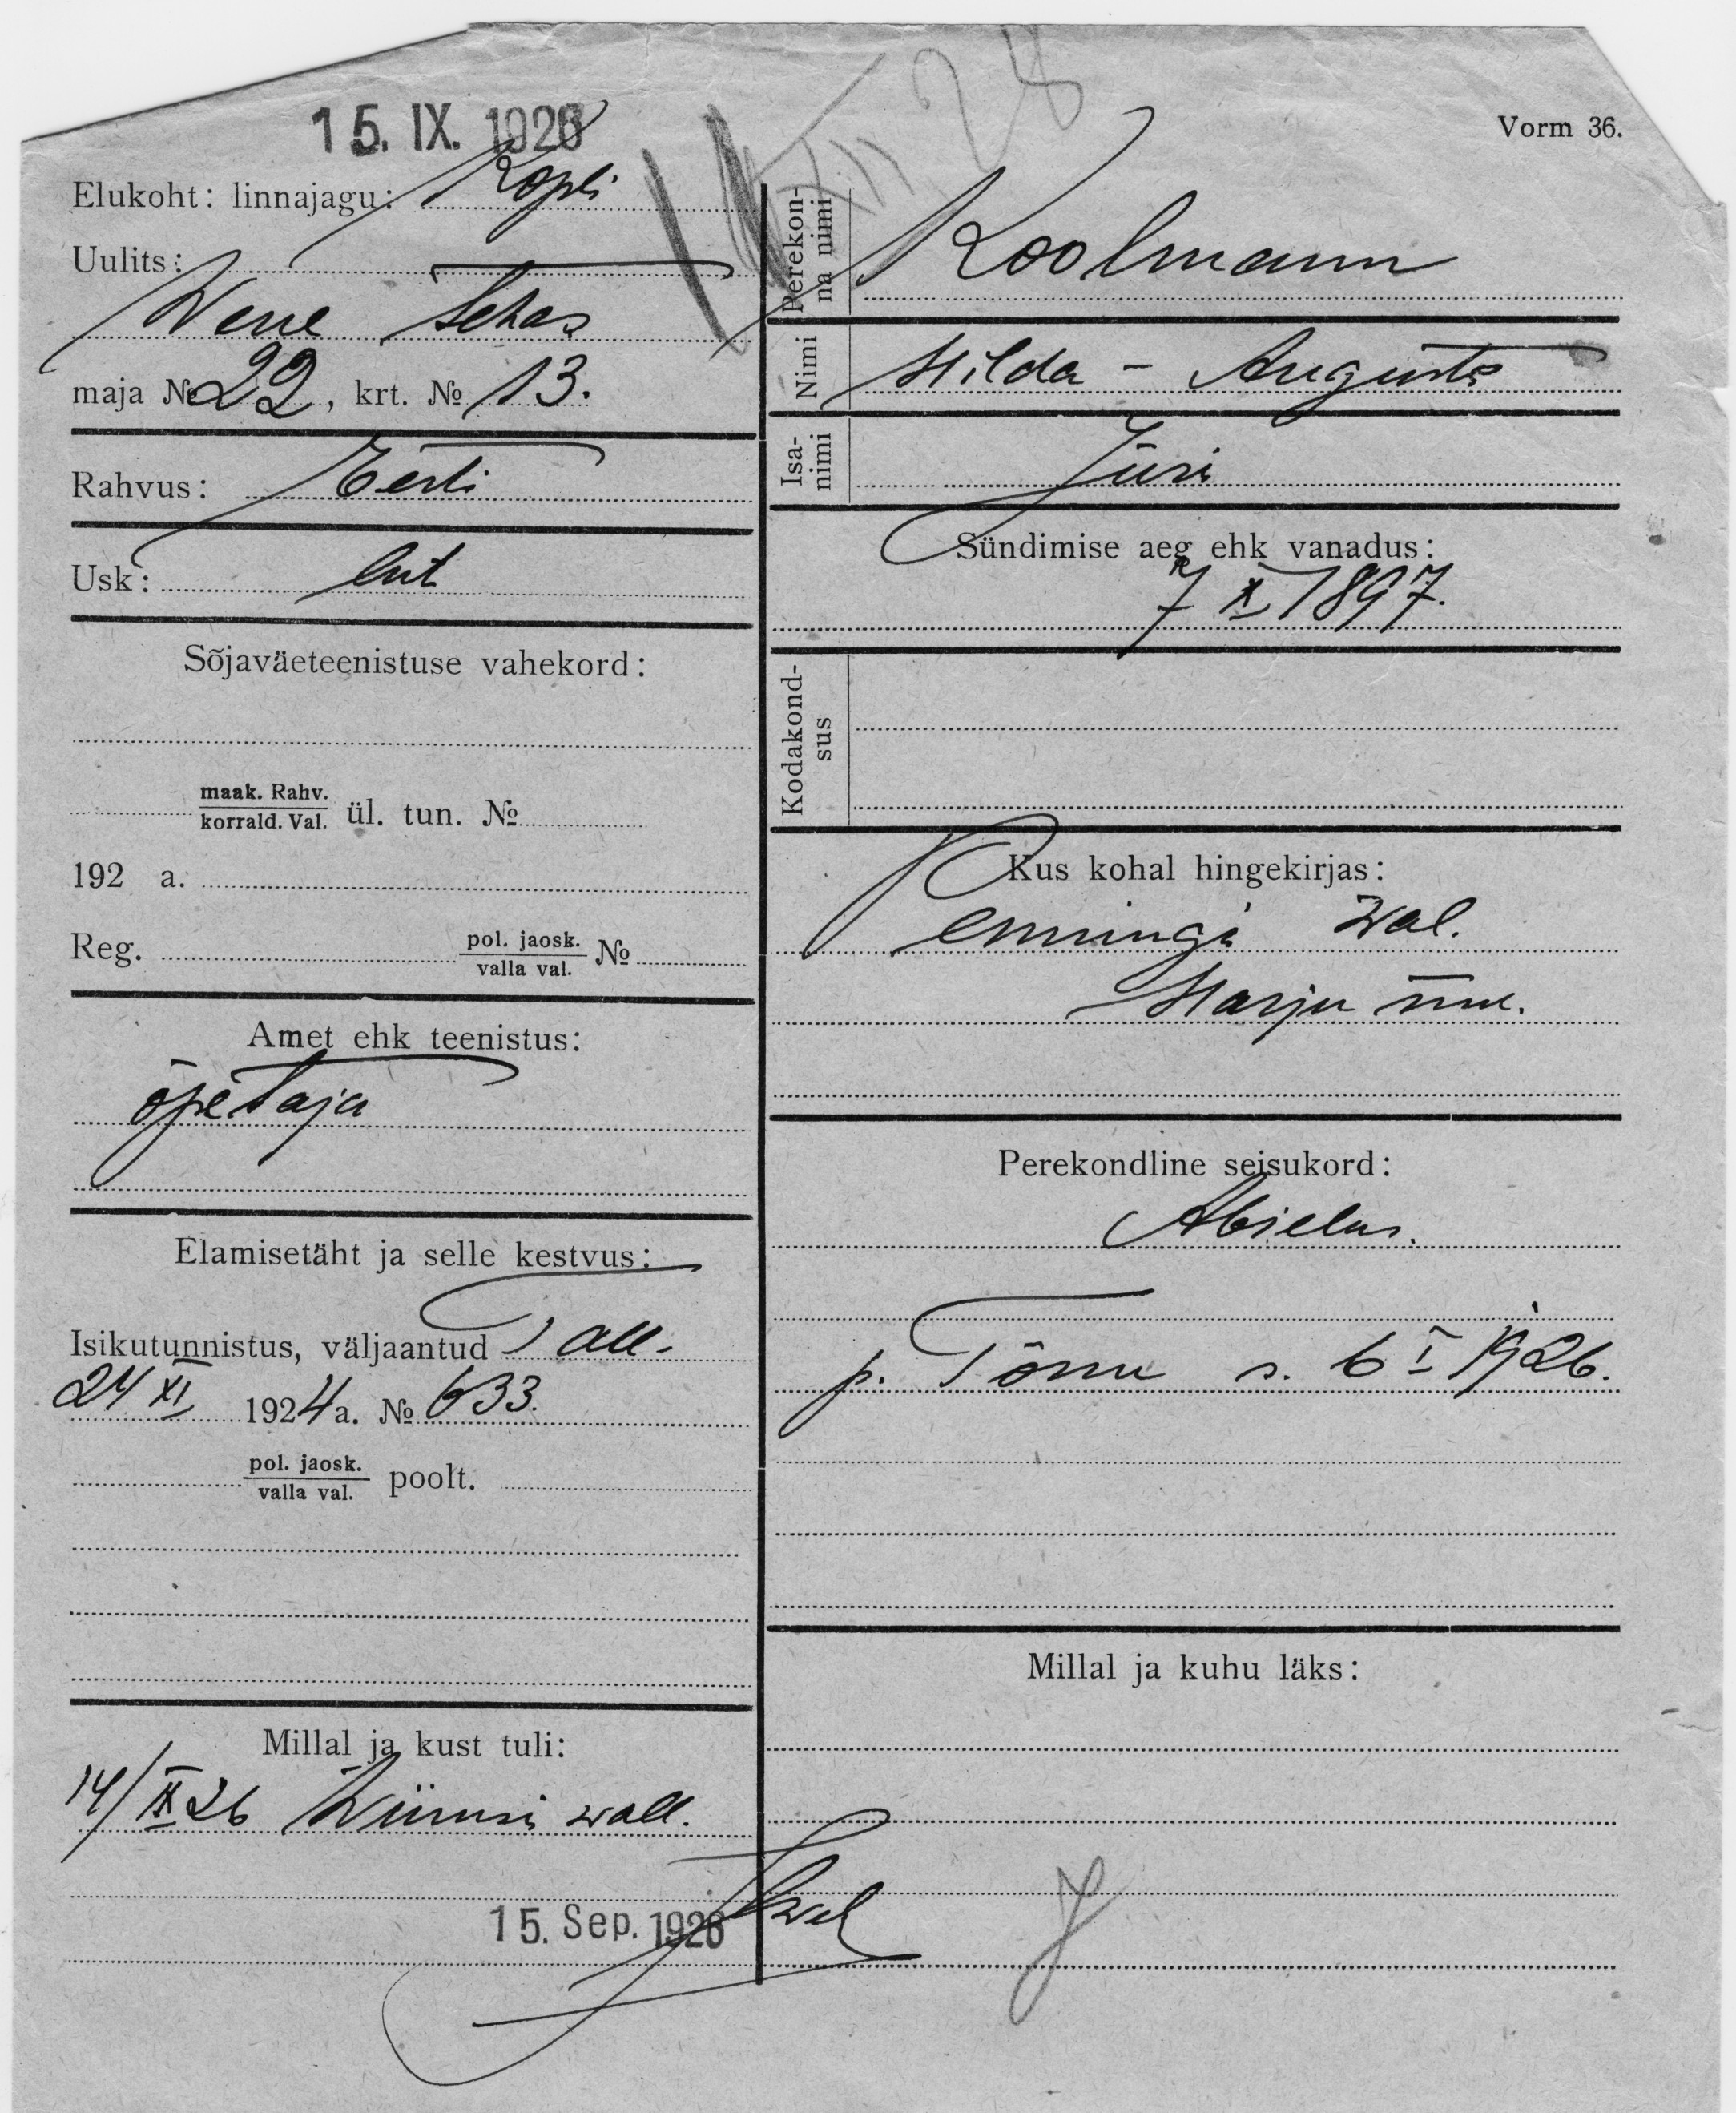 15. IX. 1926
Elukoht: linnajagu: Kopli
Uulits:
Wene tehas
maja № 22, krt. № 13.
Rahvus: Eesti
Usk: lut
Sõjaväeteenistuse vahekord:
maak. Rahv.
korrald. Val. ül. tun. №
192 a.
Reg. pol. jaosk. №
valla val.
Amet ehk teenistus:
õpetaja
Elamisetäht ja selle kestvus:
Isikutunnistus, väljaantud Tall.
24 XI 1924 a. № 633.
pol. jaosk. poolt.
valla val.
Millal ja kust tuli:
14/IX 26 Wiimsi wall.
15. Sep. 1926
28
Vorm 36.
Perekon-
na nimi
Koolmann
Nimi Hilda - Augusta
Isa-
nimi
Jüri
Sündimise aeg ehk vanadus:
7 X 1897.
Kodakond-
sus
Kus kohal hingekirjas:
Penningi wal.
Harju mm.
Perekondline seisukord:
Abielus.
p. Tõnu s. 6 I 1926.
Millal ja kuhu läks: